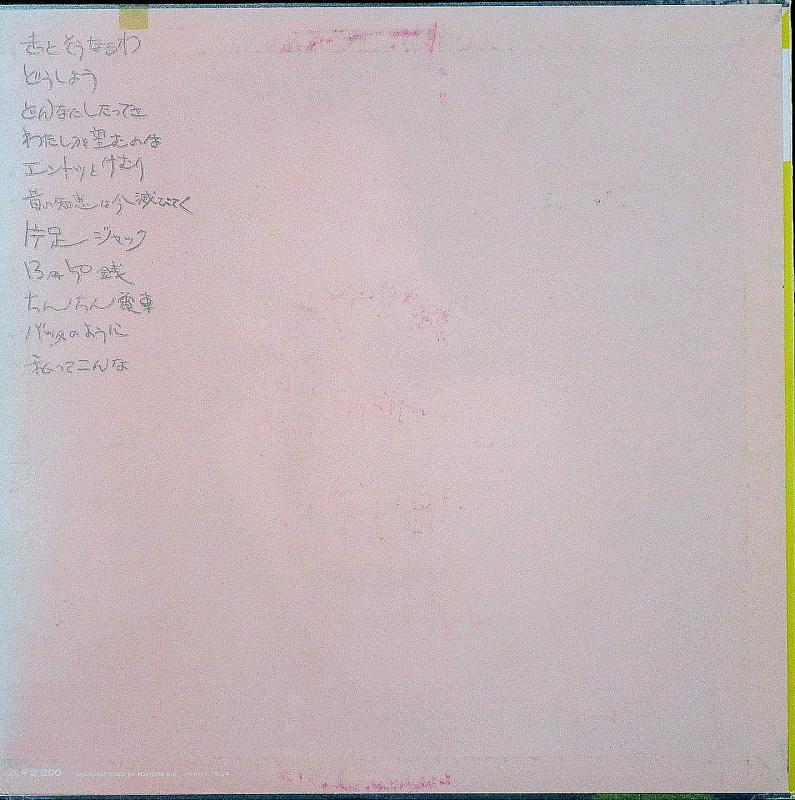 きっとそうなるわ
どうしよう
どんなにしたってさ
わたしが望むのは
エントツとけむり
昔の知恵は今滅びてく
片足ジャック
13円50銭
ちんちん電車
バッタのように
私ってこんな
¥2,200 MANUFACTURED BY POLYDOR K.K., JAPAN